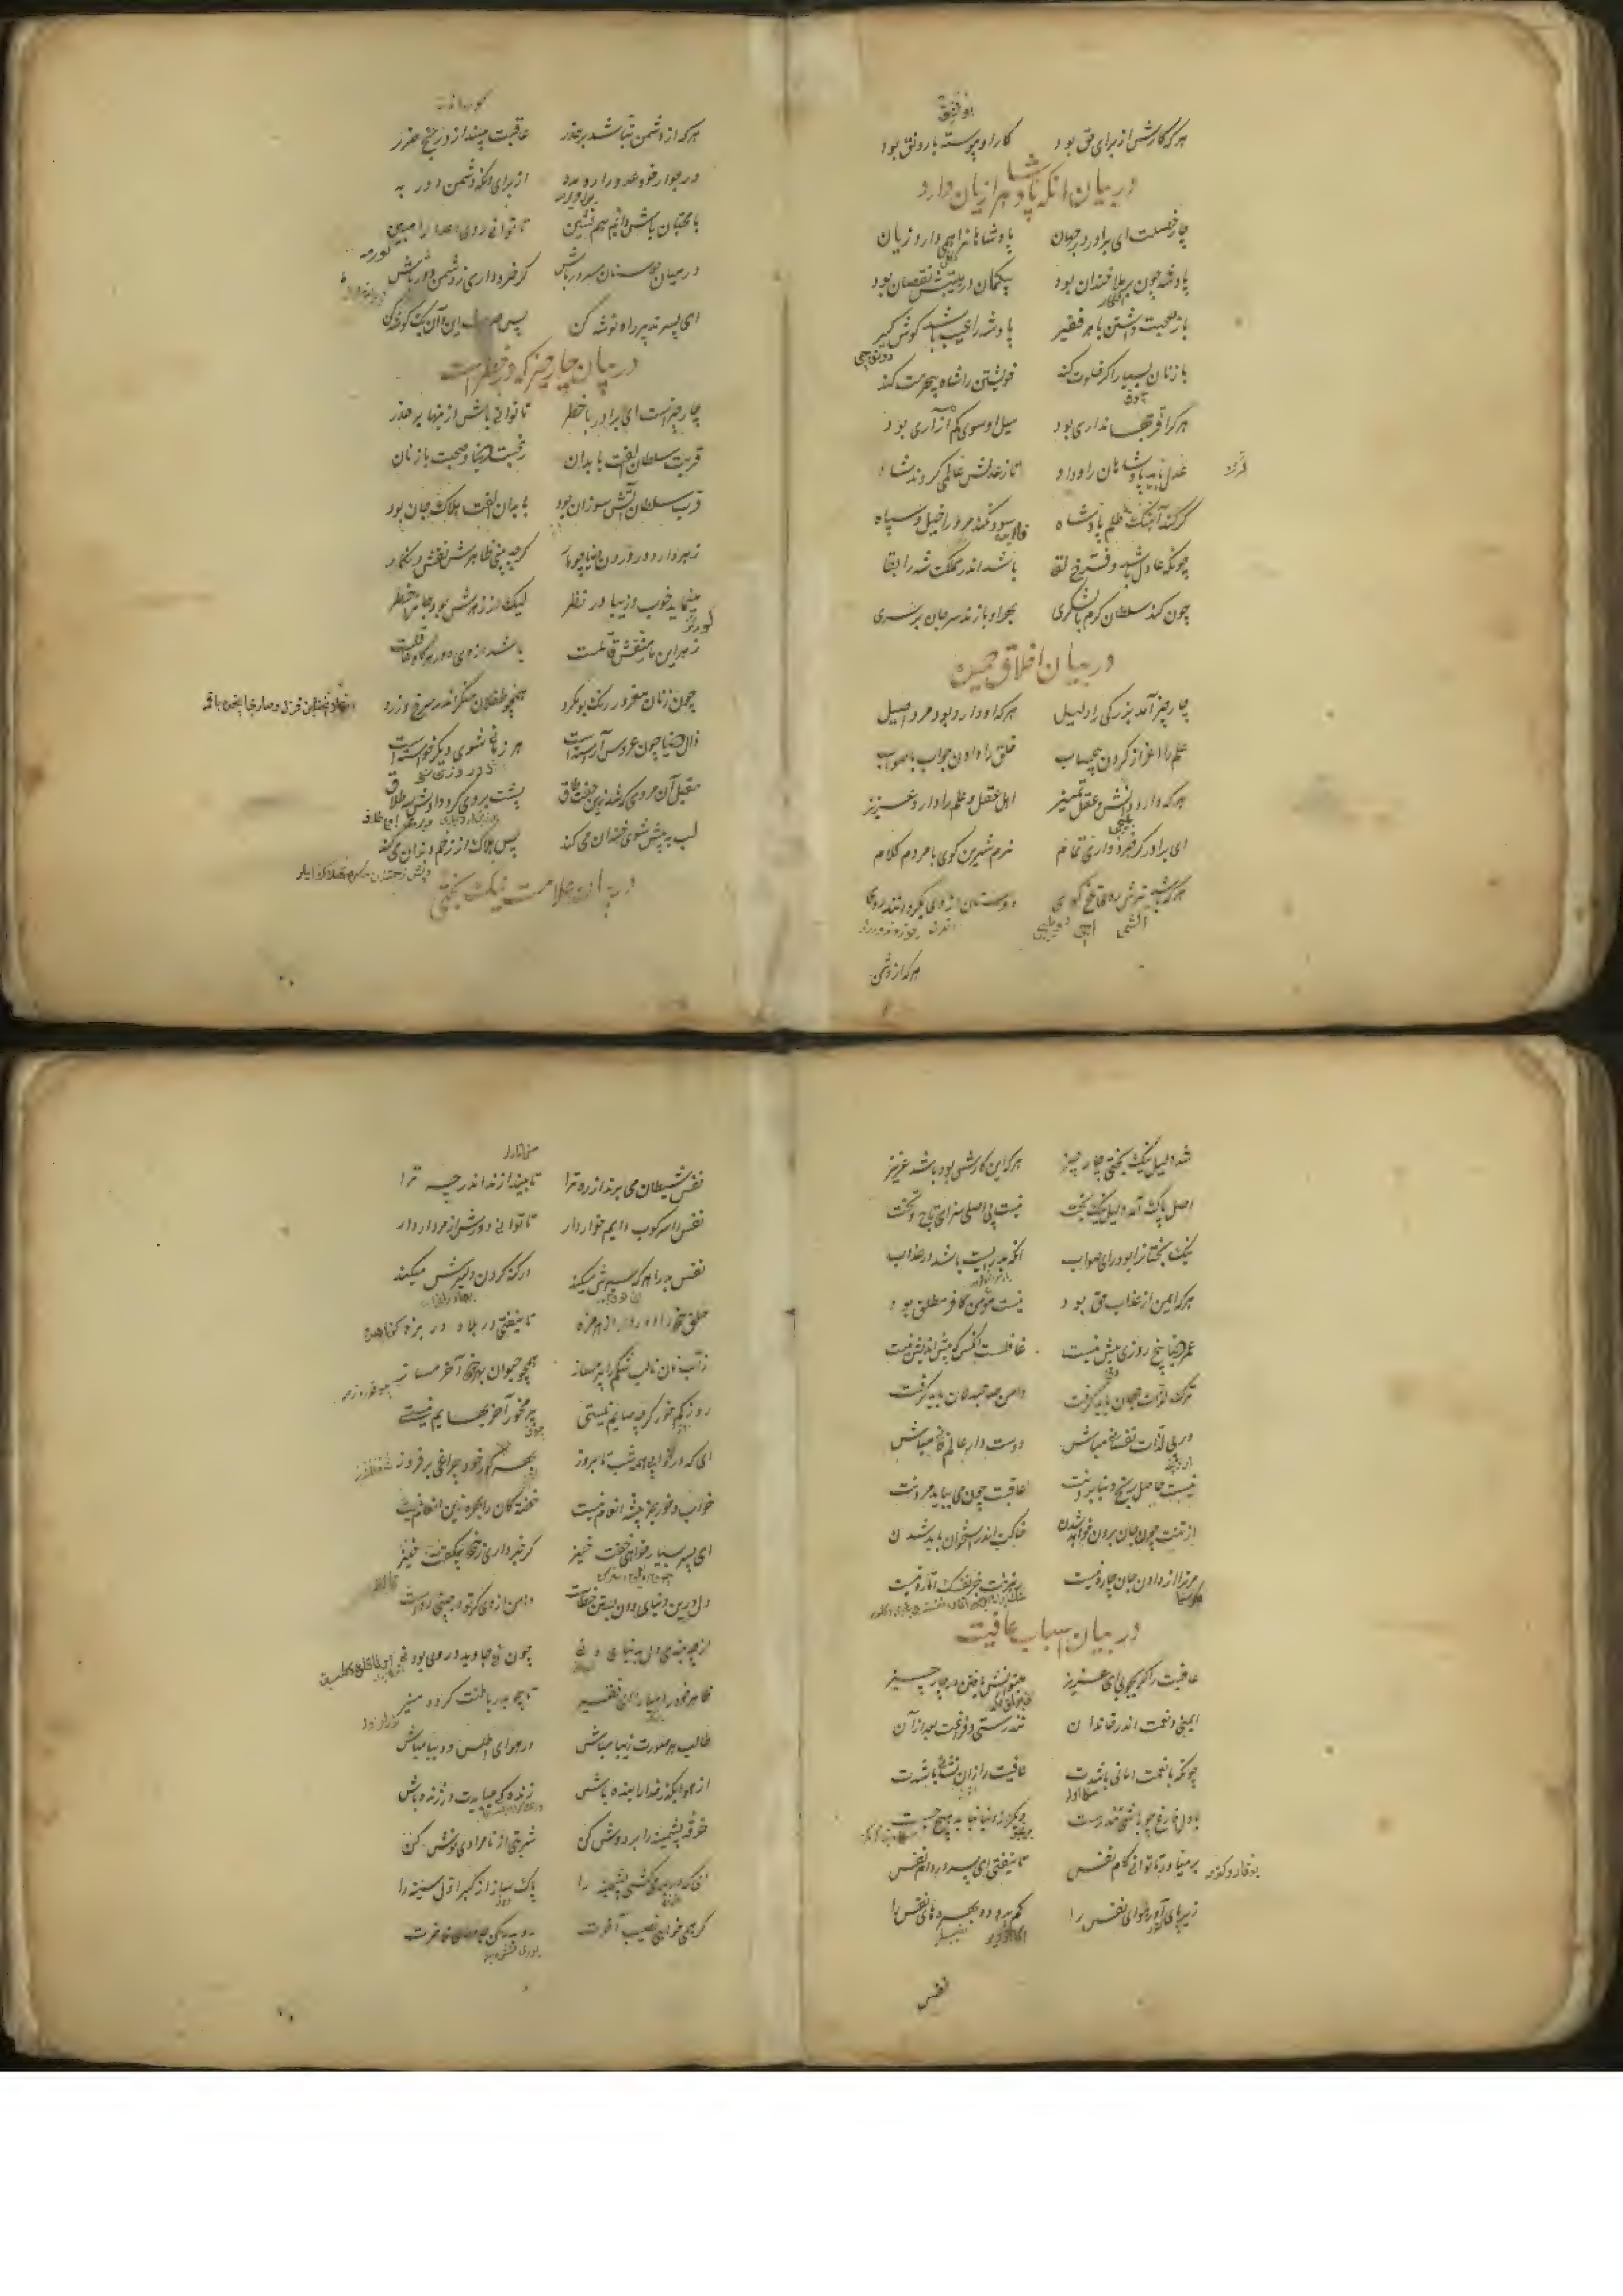 هرکه کارش از برای حق بود کار او پیوسته با رونق بود
در بیان انکه پادشاهرا زیان دارد
چار خصلت ای برادر در جهان پادشاهانرا همی دارد زیان
پادشه چون بر ملا خندان بود بیکمان در هیبتش نقصان بود
باز صحبت داشتن با هر فقیر پادشه را عیب باشد کوش کیر
با زنان بسیار اکر خلوت کند خویشتن را شاه بیحرمت کند
هرکرا فر جهانداری بود میل او سوی کم آزاری بود
عدل باید پادشاهان را و داد تا ز عدلش عالمی کردند شاد
کر کند آهنک ظلم پادشاه سود نکند مرورا خیل و سپاه
چونکه عادل باشد و فرخ لقا باشد اندر مملکت شه را بقا
چون کند سلطان کرم با لشکری بهر او بازند سر جان بر سری
در بیان اخلاق حمیده
چار چیز آمد بزرکی را دلیل هرکه او دارد بود مرد اصیل
علم را اعزاز کردن بیحساب خلق را دادن جواب با صواب
هرکه دارد دانش و عقل و تمیز اهل عقل و علم را دارد عزیز
ای برادر کر خرد داری تمام نرم شیرین کوی با مردم کلام
هرکه باشد ترش روی و تلخ کوی دوستان از وی بکردانند روی
هرکه از دشمن
هرکه از دشمن نباشد بر حذر عاقبت بیند ازو رنج و ضرر
در جوار خود عدو را ره مده از برای انکه دشمن دور به
با محبان باش دائم هم نشین تا توانی روی اعدا را مبین
در میان دوستان مسرور باش کر خرد داری ز دشمن دور باش
ای پسر تدبیر راه توشه کن پس حدیث این و آن یک کوشه کن
در بیان چار چیز که در خطر است
چار چیزست ای برادر با خطر تا توانی باش از ینها بر حذر
قربت سلطان الفت با بدان رغبت دنیا و صحبت با زنان
قرب سلطان آتش سوزان بود با بدان الفت هلاک جان بود
زهر دارد در درون دنیا چو مار کرچه بینی ظاهرش نقش و نکار
مینماید خوب و زیبا در نظر لیک از زهرش بود جان را خطر
زهر این مار منقش قاتلست باشد از وی دور هرکه عاقلست
چون زنان مغرور رنک و بو مکرد همچو طفلان منکر اندر سرخ و زرد
زال دنیا چون عروس آراستست هر زمانی شوی دیکر خواستست
مقبل آن مردی که شد زین جفت طاق پشت بر وی کرد و دادش سه طلاق
لب به پیش شوی خندان می کند پس هلاک از زخم دندان می کند
در بیان علامت نیک بختی
شد دلیل نیک بختی چار چیز هرکه این کارش بود باشد عزیز
اصل پاک آمد دلیل نیک بخت نیست بی اصلی سزای تاج و تخت
نیک بختانرا بود رای صواب انکه بد رایست باشد در عذاب
هرکه ایمن از عذاب حق بود نیست مؤمن کافر مطلق بود
عمر دنیا پنج روزی بیش نیست غافلست آنکس که پیش اندیش نیست
ترک لذات جهان باید کرفت دامن صاحبدلان باید کرفت
در پی لذات نفسانی مباش دوست دار عالم فانی مباش
نیست حاصل رنج دنیا بردنت عاقبت چون می بباید مردنت
از تنت چون جان برون خواهد شدن خاکت اندر استخوان باید شدن
مر ترا از دادن جان چاره نیست رهزنت جز نفسک اماره نیست
در بیان اسباب عافیت
عافیت را کر بجویی ای عزیز میتوانش یافتن در چار چیز
ایمنی و نعمت اندر خاندان تندرستی و فراغت بعد از آن
چونکه با نعمت امانی باشدت عافیت را زان نشانی باشدت
با دل فارغ چو باشی تندرست دیکر از دنیا نباید هیچ جست
بر میاور تا توانی کام نفس تا نیفتی ای پسر در دام نفس
زیر پای آور هوای نفس را کم بده بهره های نفس را
نفس
نفس و شیطان می برند از ره ترا تا بیندازند اندر چه ترا
نفس را سرکوب دایم خوار دار تا توانی دورش از مردار دار
نفس بد را هرکه سیرش میکند در کنه کردن دلیرش میکند
خلق خود را دور دار از هر مزه تا نیفتی در بلاء و در بزه
ز آب نان تا لب شکم را پر مساز همچو حیوان بهر خود آخر مساز
روز کم خور کرچه صایم نیستی پر مخور آخر بهایم نیستی
ای که در خوابی همه شب تا بروز بهر کور خود چراغی بر فروز
خواب و خور جز پیشه انعام نیست خفته کان را بهره زین انعام نیست
ای پسر بسیار خواهی خفت خیز کر خبر داری ز خود بیکفت خیز
دل درین دنیای دون بستن خطاست دامن از وی کر تو در چینی رواست
از چه بندی دل بدنیای دنی چون نه جاوید در وی بودنی
ظاهر خود را میارا ای فقیر تا چو بدر باطنت کردد منیر
طالب هر صورت زیبا مباش در هوای اطلس و دیبا مباش
از هوا بکذر خدا را بنده باش زنده کی میبایدت در ژنده باش
خرقه پشمینه را بر دوش کن شربتی از نامرادی نوش کن
ای که در بر میکشی پشمینه را پاک ساز از کبر اول سینه را
کر همی خواهی نصیب آخرت رو بدر کن جامهای فاخرت